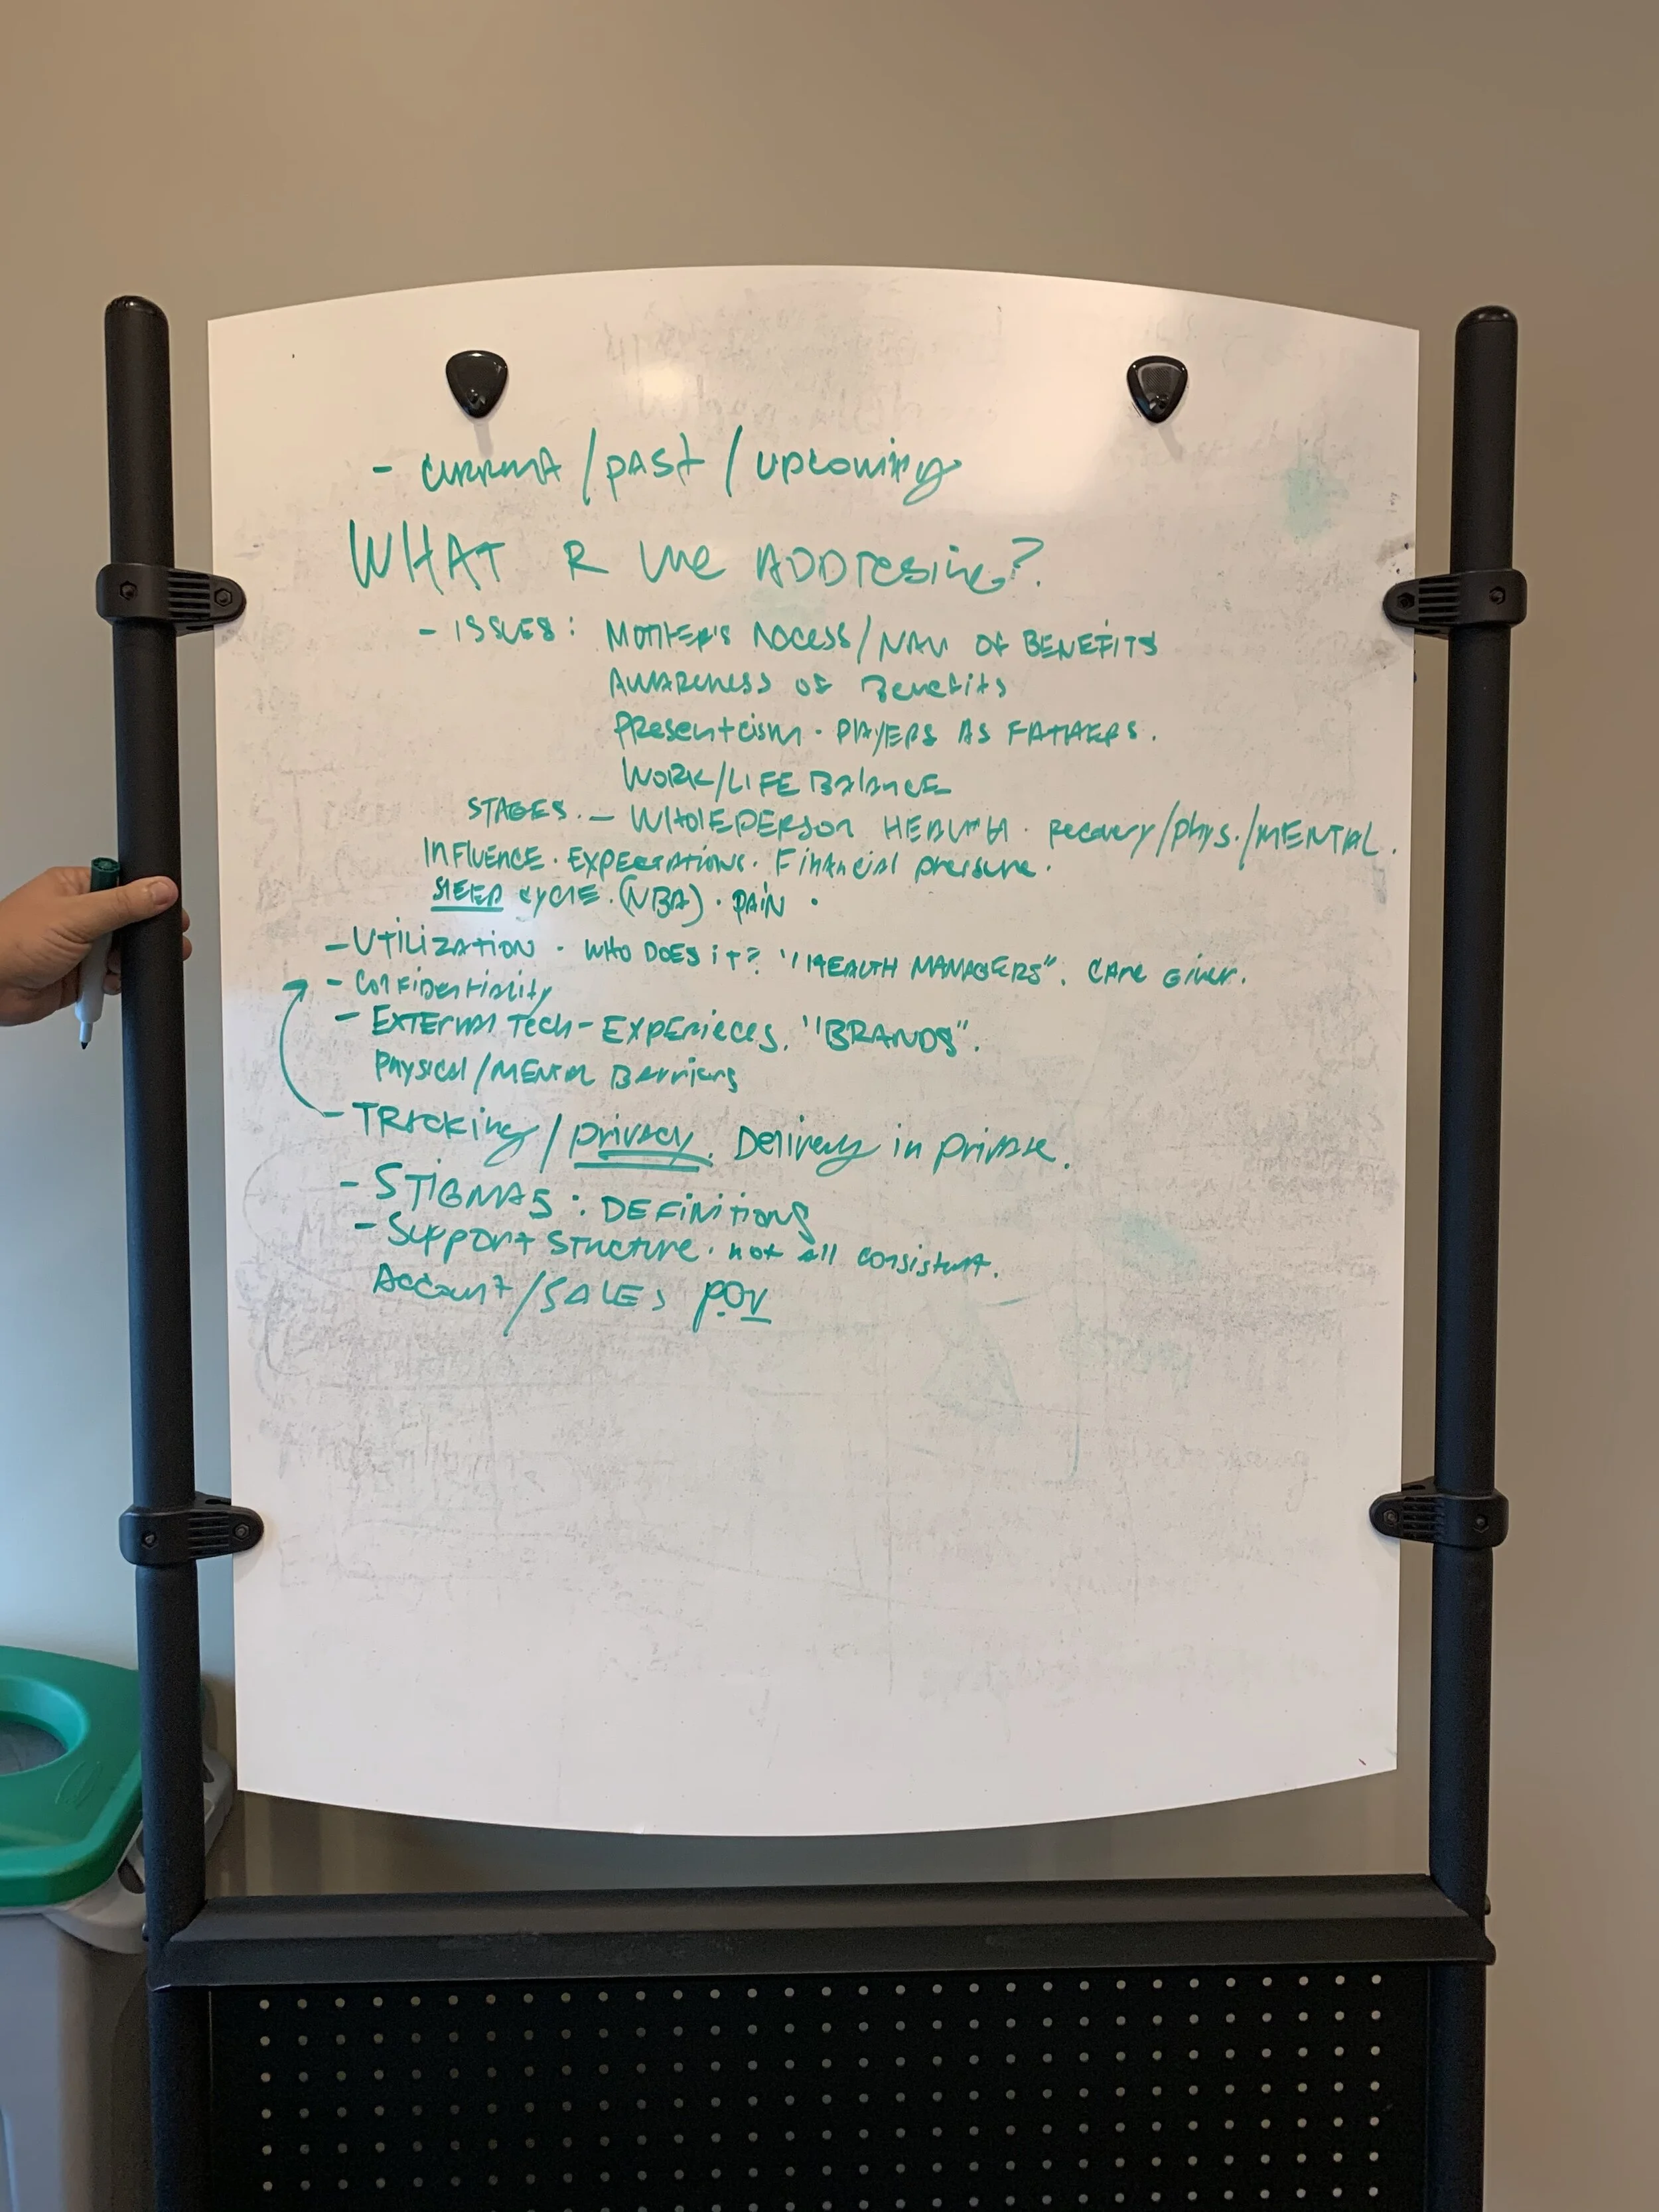 - current / past / upcoming
WHAT R we ADDresing?
- ISSUES: MOTHER'S ACCESS/NAV OF BENEFITS
AWARENESS OF Benefits
Presenteism · PLAYERS AS FATHERS.
WORK/LIFE Balance
STAGES. - WHOLEPERSON HEALTH · Recovery/phys./MENTAL.
INFLUENCE · EXPECTATIONS · Financial pressure.
SLEEP CYCLE. (NBA) · PAIN ·
- UTILIZATION · WHO DOES iT? "HEALTH MANAGERS". CARE Giver.
- Confidentiality
- EXTERNAL Tech - EXPERIECES. "BRANDS".
Physical/MENTAL Barriers
- TRACKing / privacy. Delivery in private.
- STIGMAS: DEFinitions
- Support Structure · not all consistent.
Account/SALES POV